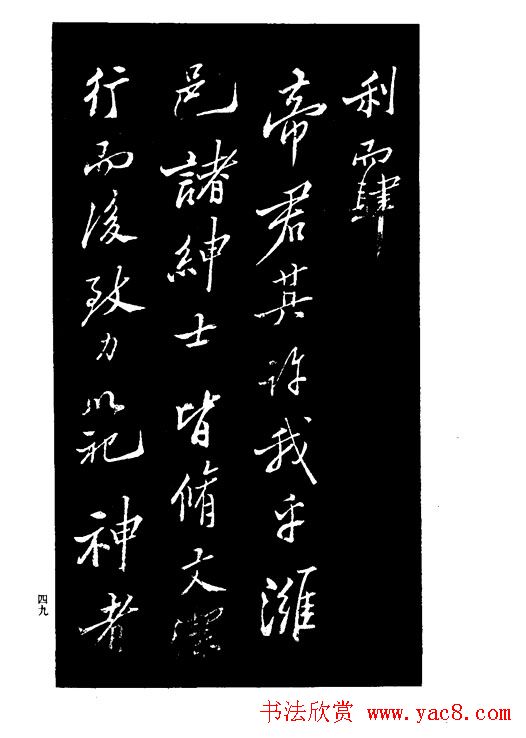 利而肆
帝君其許我乎濰
邑諸紳士皆脩文潔
行而後致力以祀神者
四九
书法欣赏 www.yac8.com